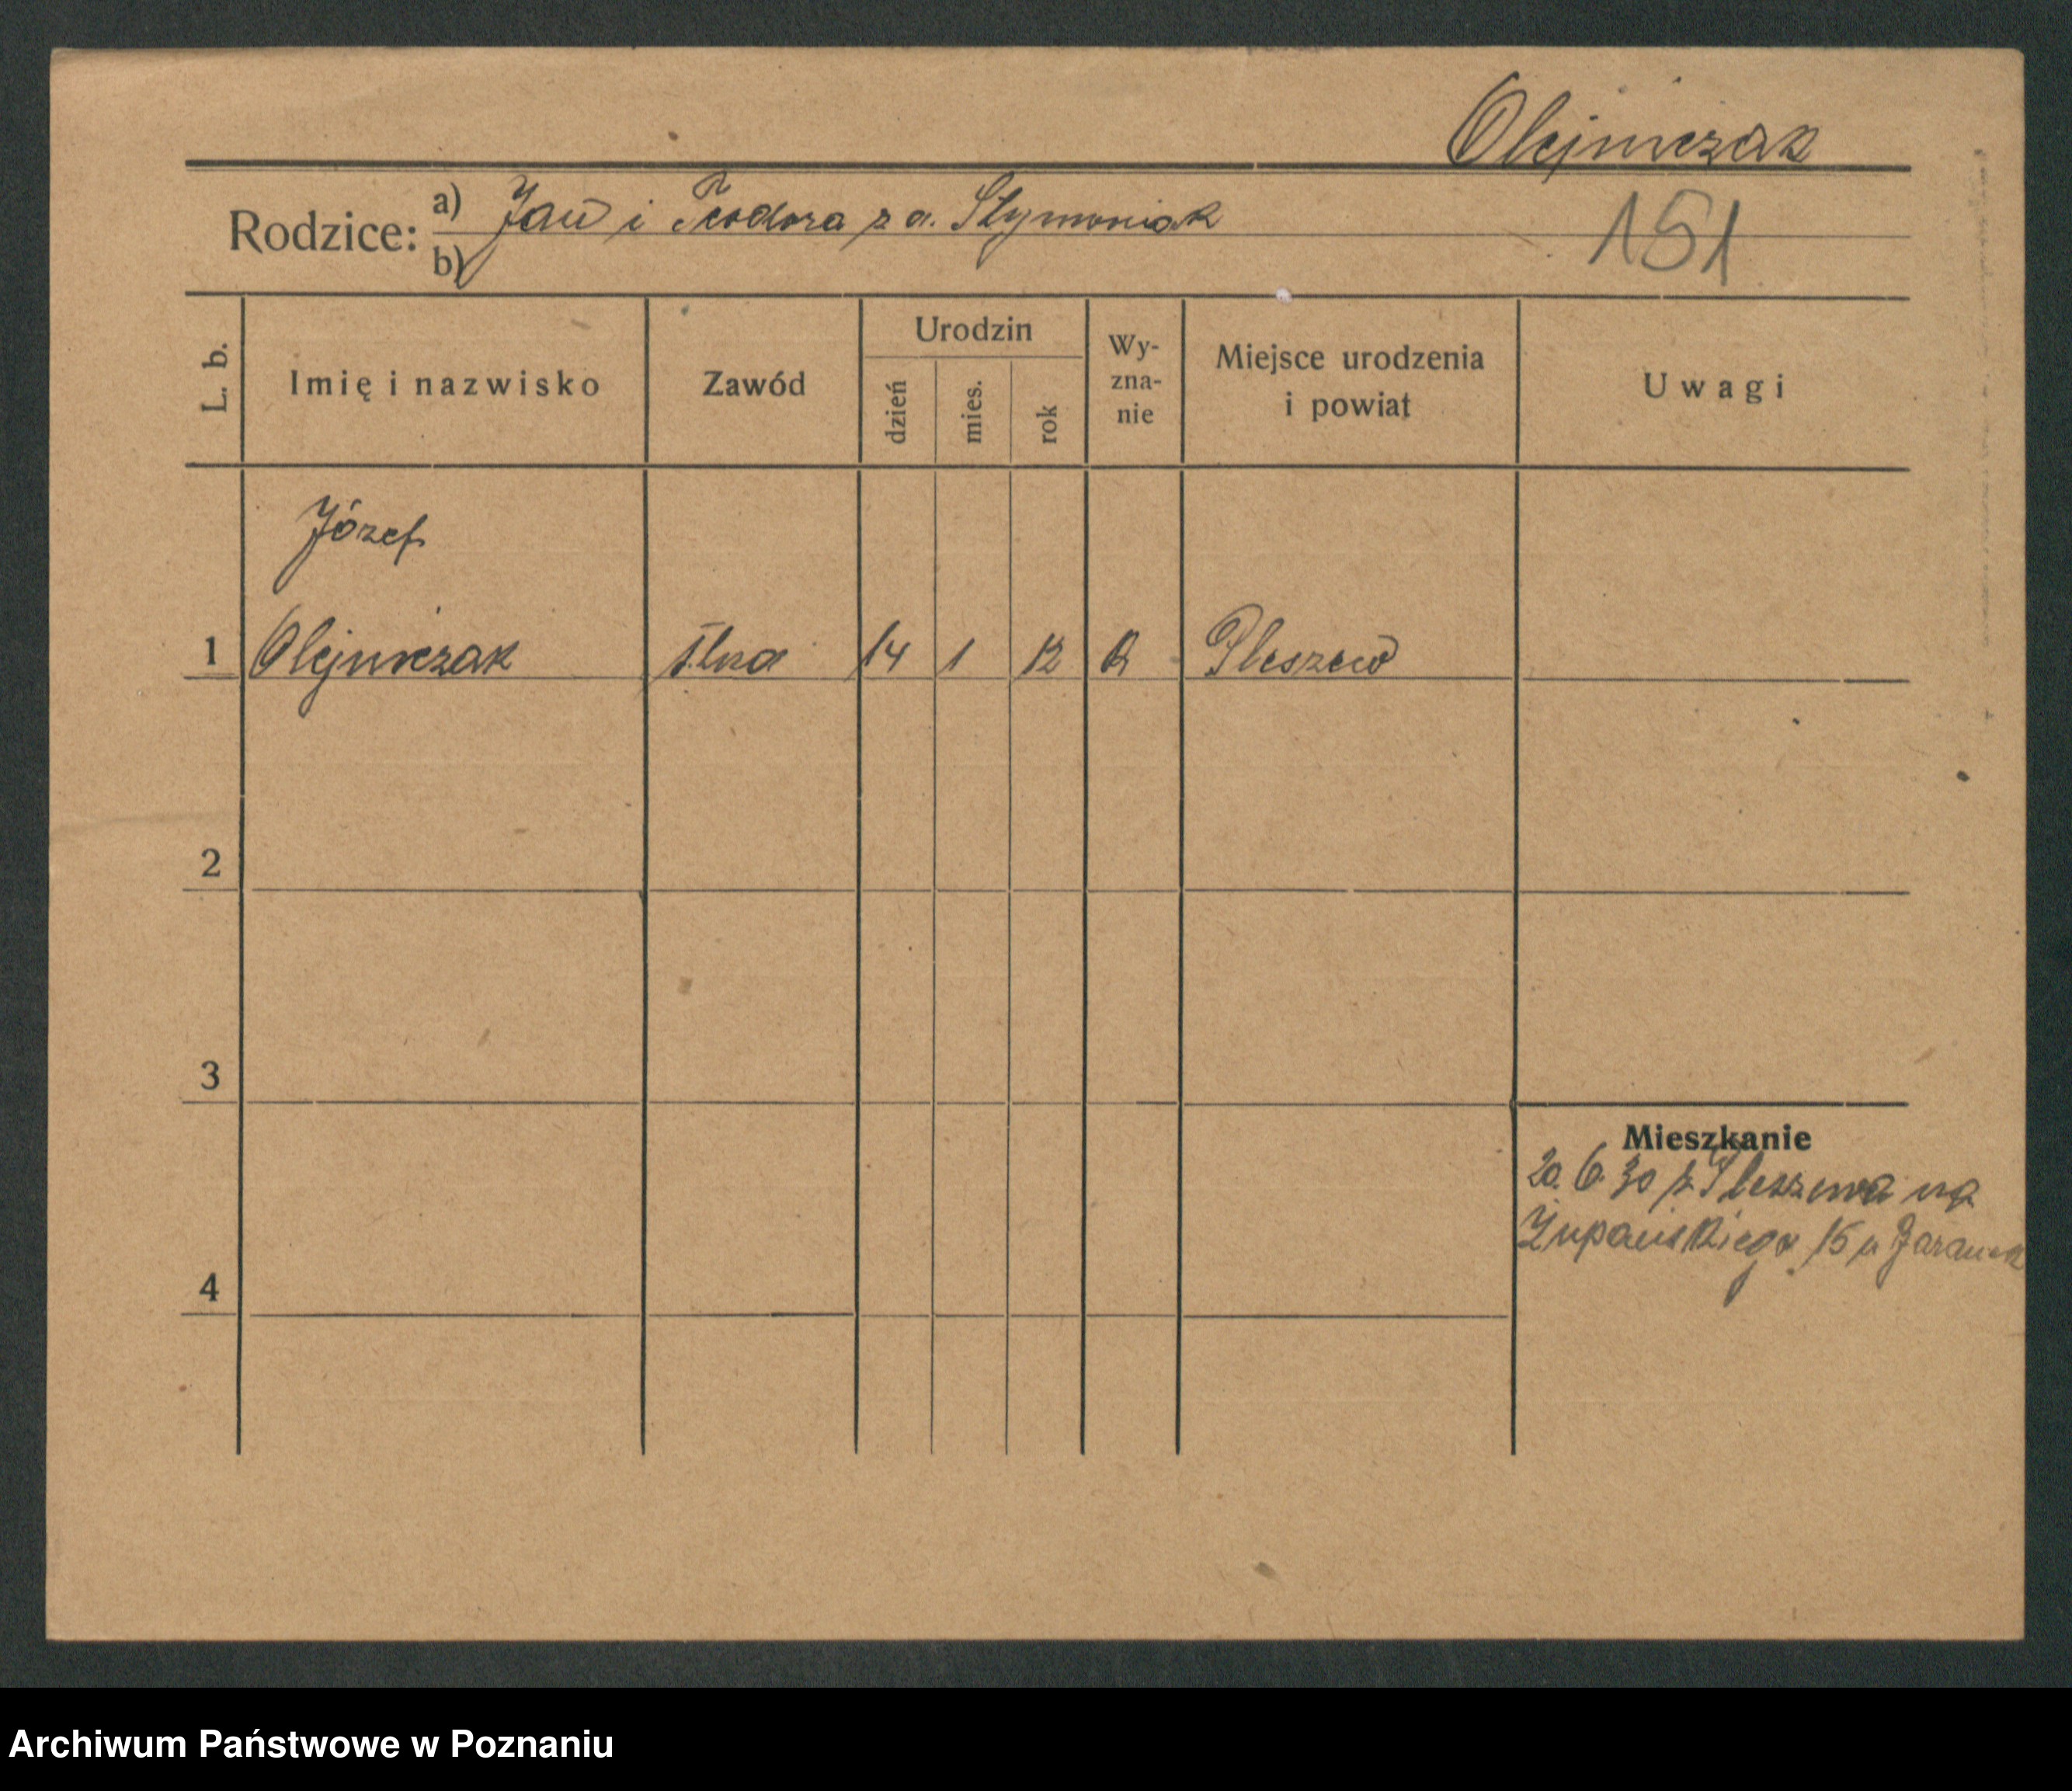 Olejniczak
Rodzice: a) Jan i Teodora z d. Szymoniak
b)
151
L. b. Imię i nazwisko Zawód Urodzin dzień mies. rok Wy-zna-nie Miejsce urodzenia i powiat Uwagi
Józef
1 Olejniczak 14 1 12 R Pleszew
2
3
Mieszkanie
20. 6. 30 z Pleszewa na
Żupańskiego 15 u
4
Archiwum Państwowe w Poznaniu